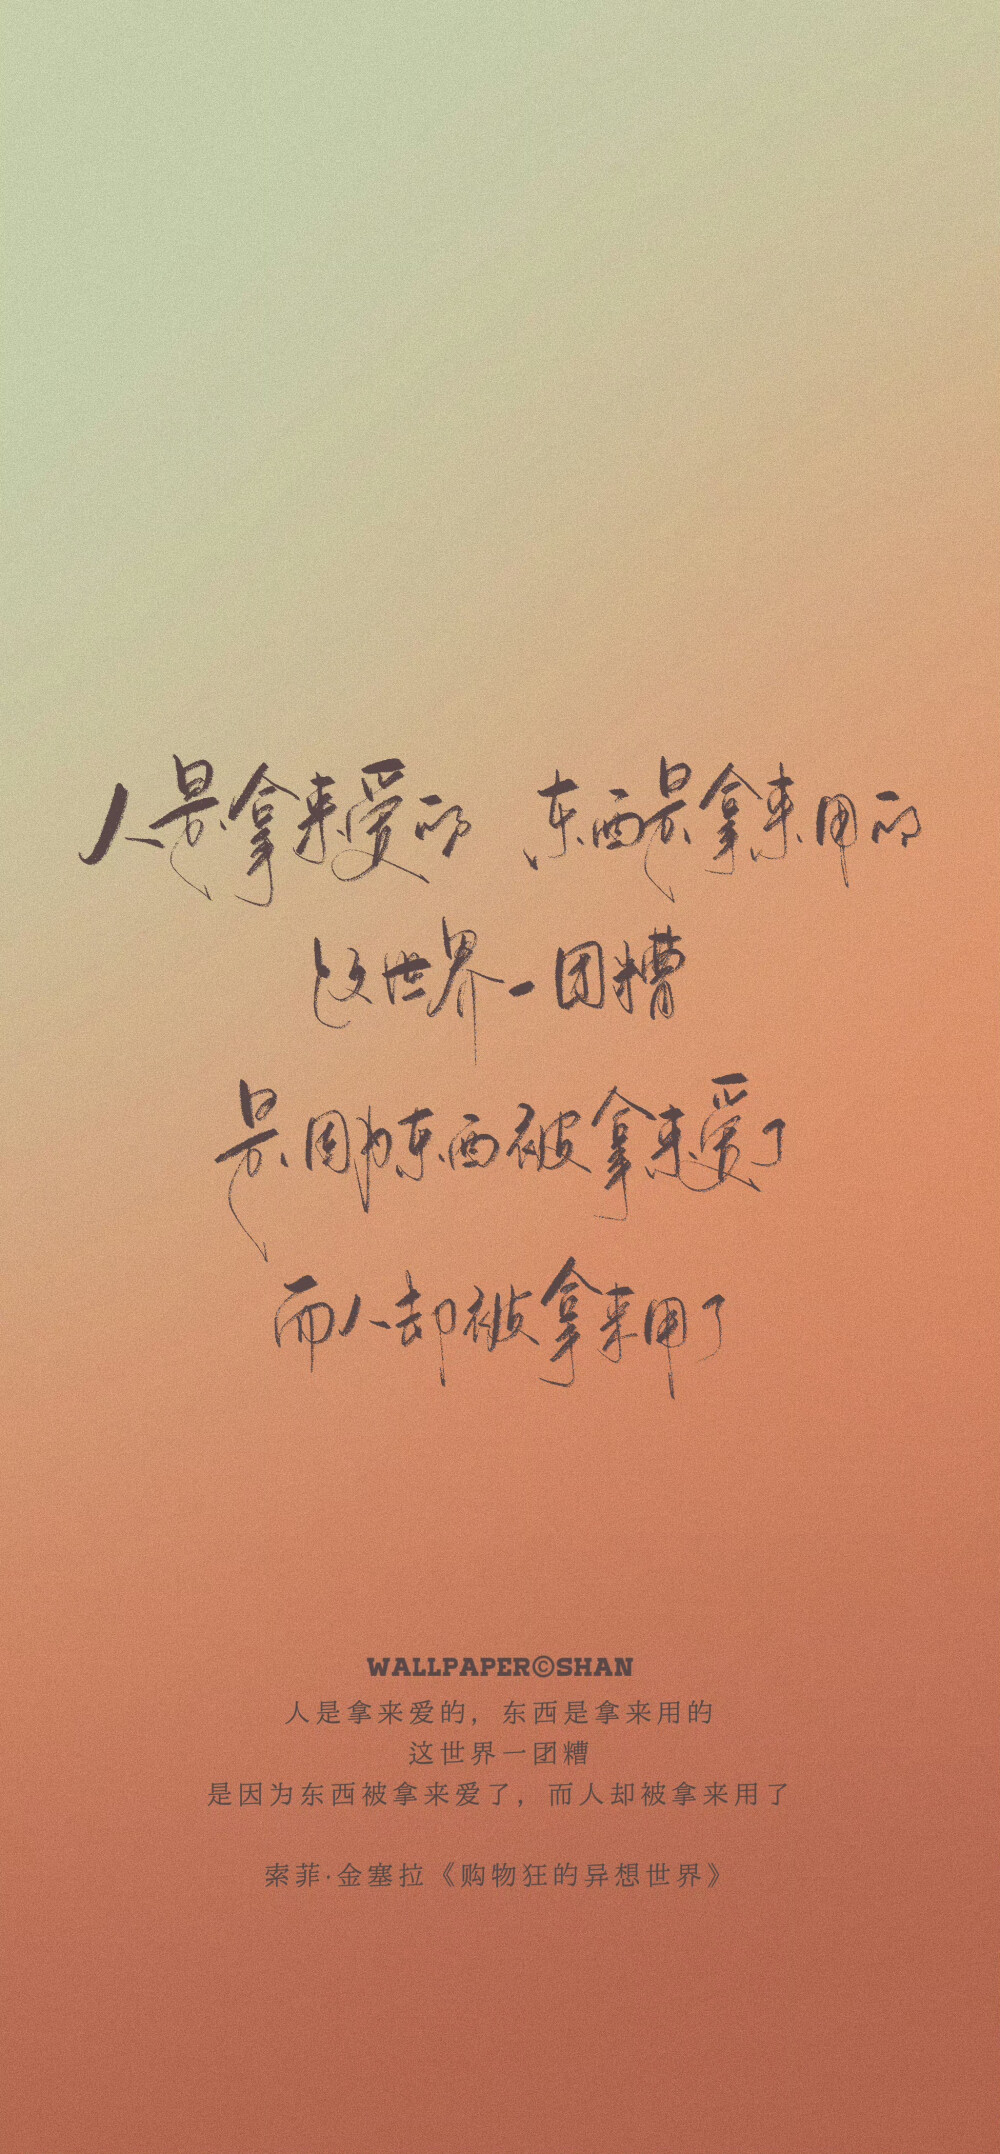 人是拿来爱的 东西是拿来用的
这世界一团糟
是因为东西被拿来爱了
而人却被拿来用了
WALLPAPER©SHAN
人是拿来爱的，东西是拿来用的
这世界一团糟
是因为东西被拿来爱了，而人却被拿来用了
索菲·金塞拉《购物狂的异想世界》